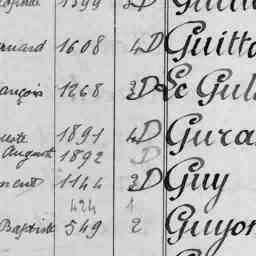 1608 4D Guitt
ançois 1268 3D Le Gul
1891 4D Gura
August 1892 D
ment 1144 3D Guy
424 1
Baptiste 549 2 Guyon